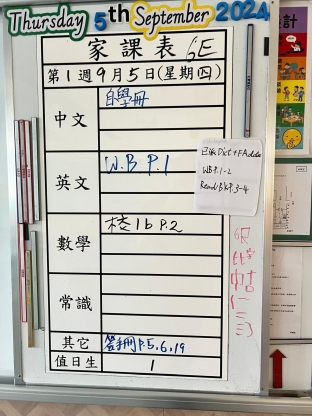 Thursday 5th September 2024
家課表 6E
第1週9月5日(星期四)
中文
自學冊
英文
W.B P.1
已派 Dict +
WB P.1-2
Read: BK P.3-4
數學
1b P.2
常識
其它
手冊P.5,6,19
值日生
1